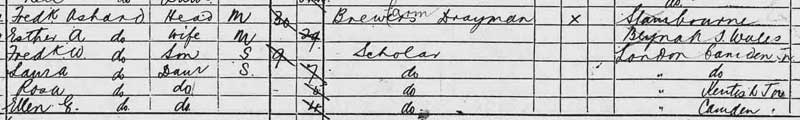 Fredk Ashard Head M 30 Brewers Drayman x Stambourne
Esther A do Wife M 29 S. Wales
Fredk W do Son S 9 Scholar London Camden Tn
Laura do Daur S. 7 do " do
Rosa do do do " Kentish Tow
Ellen E. do do 4 do " Camden "